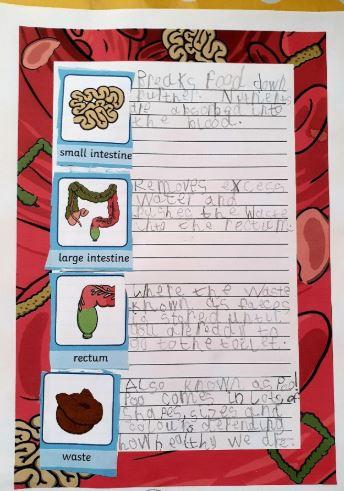 Breaks food down
further. Nutrients
are absorbed into
the blood.
small intestine
Removes excess
water and
pushes the waste
into the rectum.
large intestine
Where the waste
known as faeces
is stored until
you are ready to
go to the toilet.
rectum
Also known as Poo!
Poo comes in lots of
shapes, sizes and
colours depending
how healthy we are.
waste